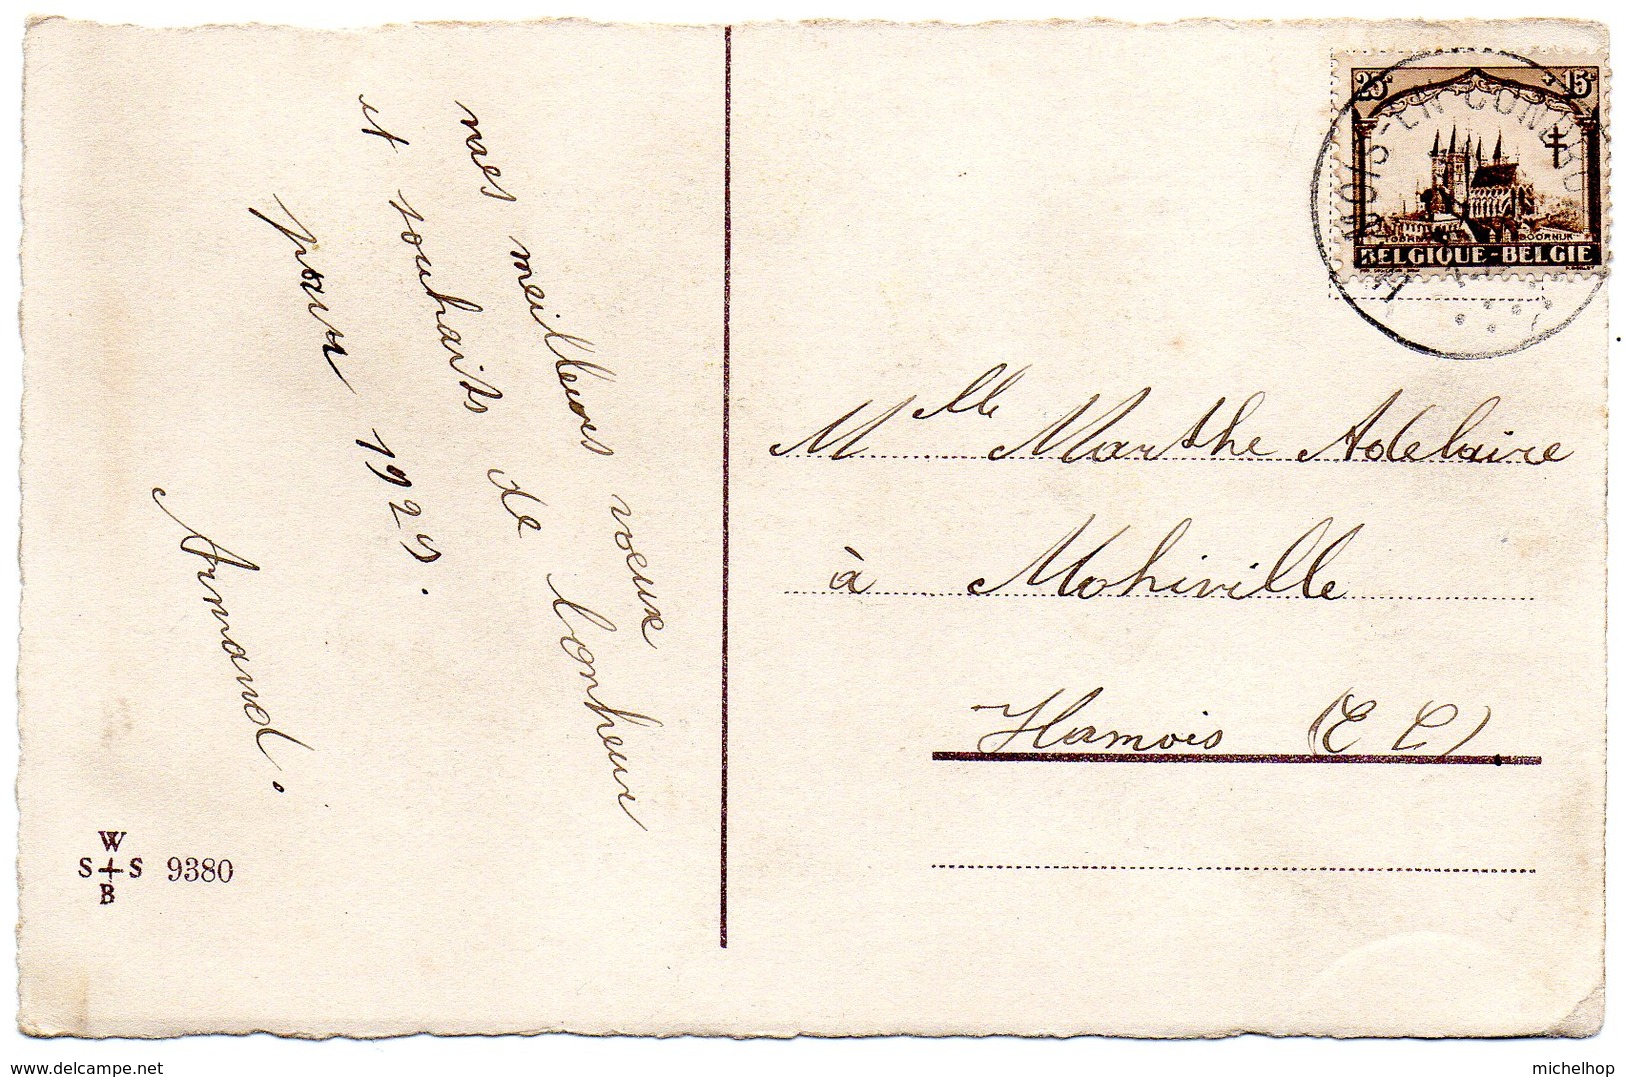 mes meilleures voeux
et souhaits de bonheur
pour 1929.
Armand.
W
S S 9380
B
25c 15c
DOORNIJK
BELGIQUE-BELGIE
Mlle Marthe Adelaire
à Mohiville
Hamois (E C).
delcampe.net
michelhop